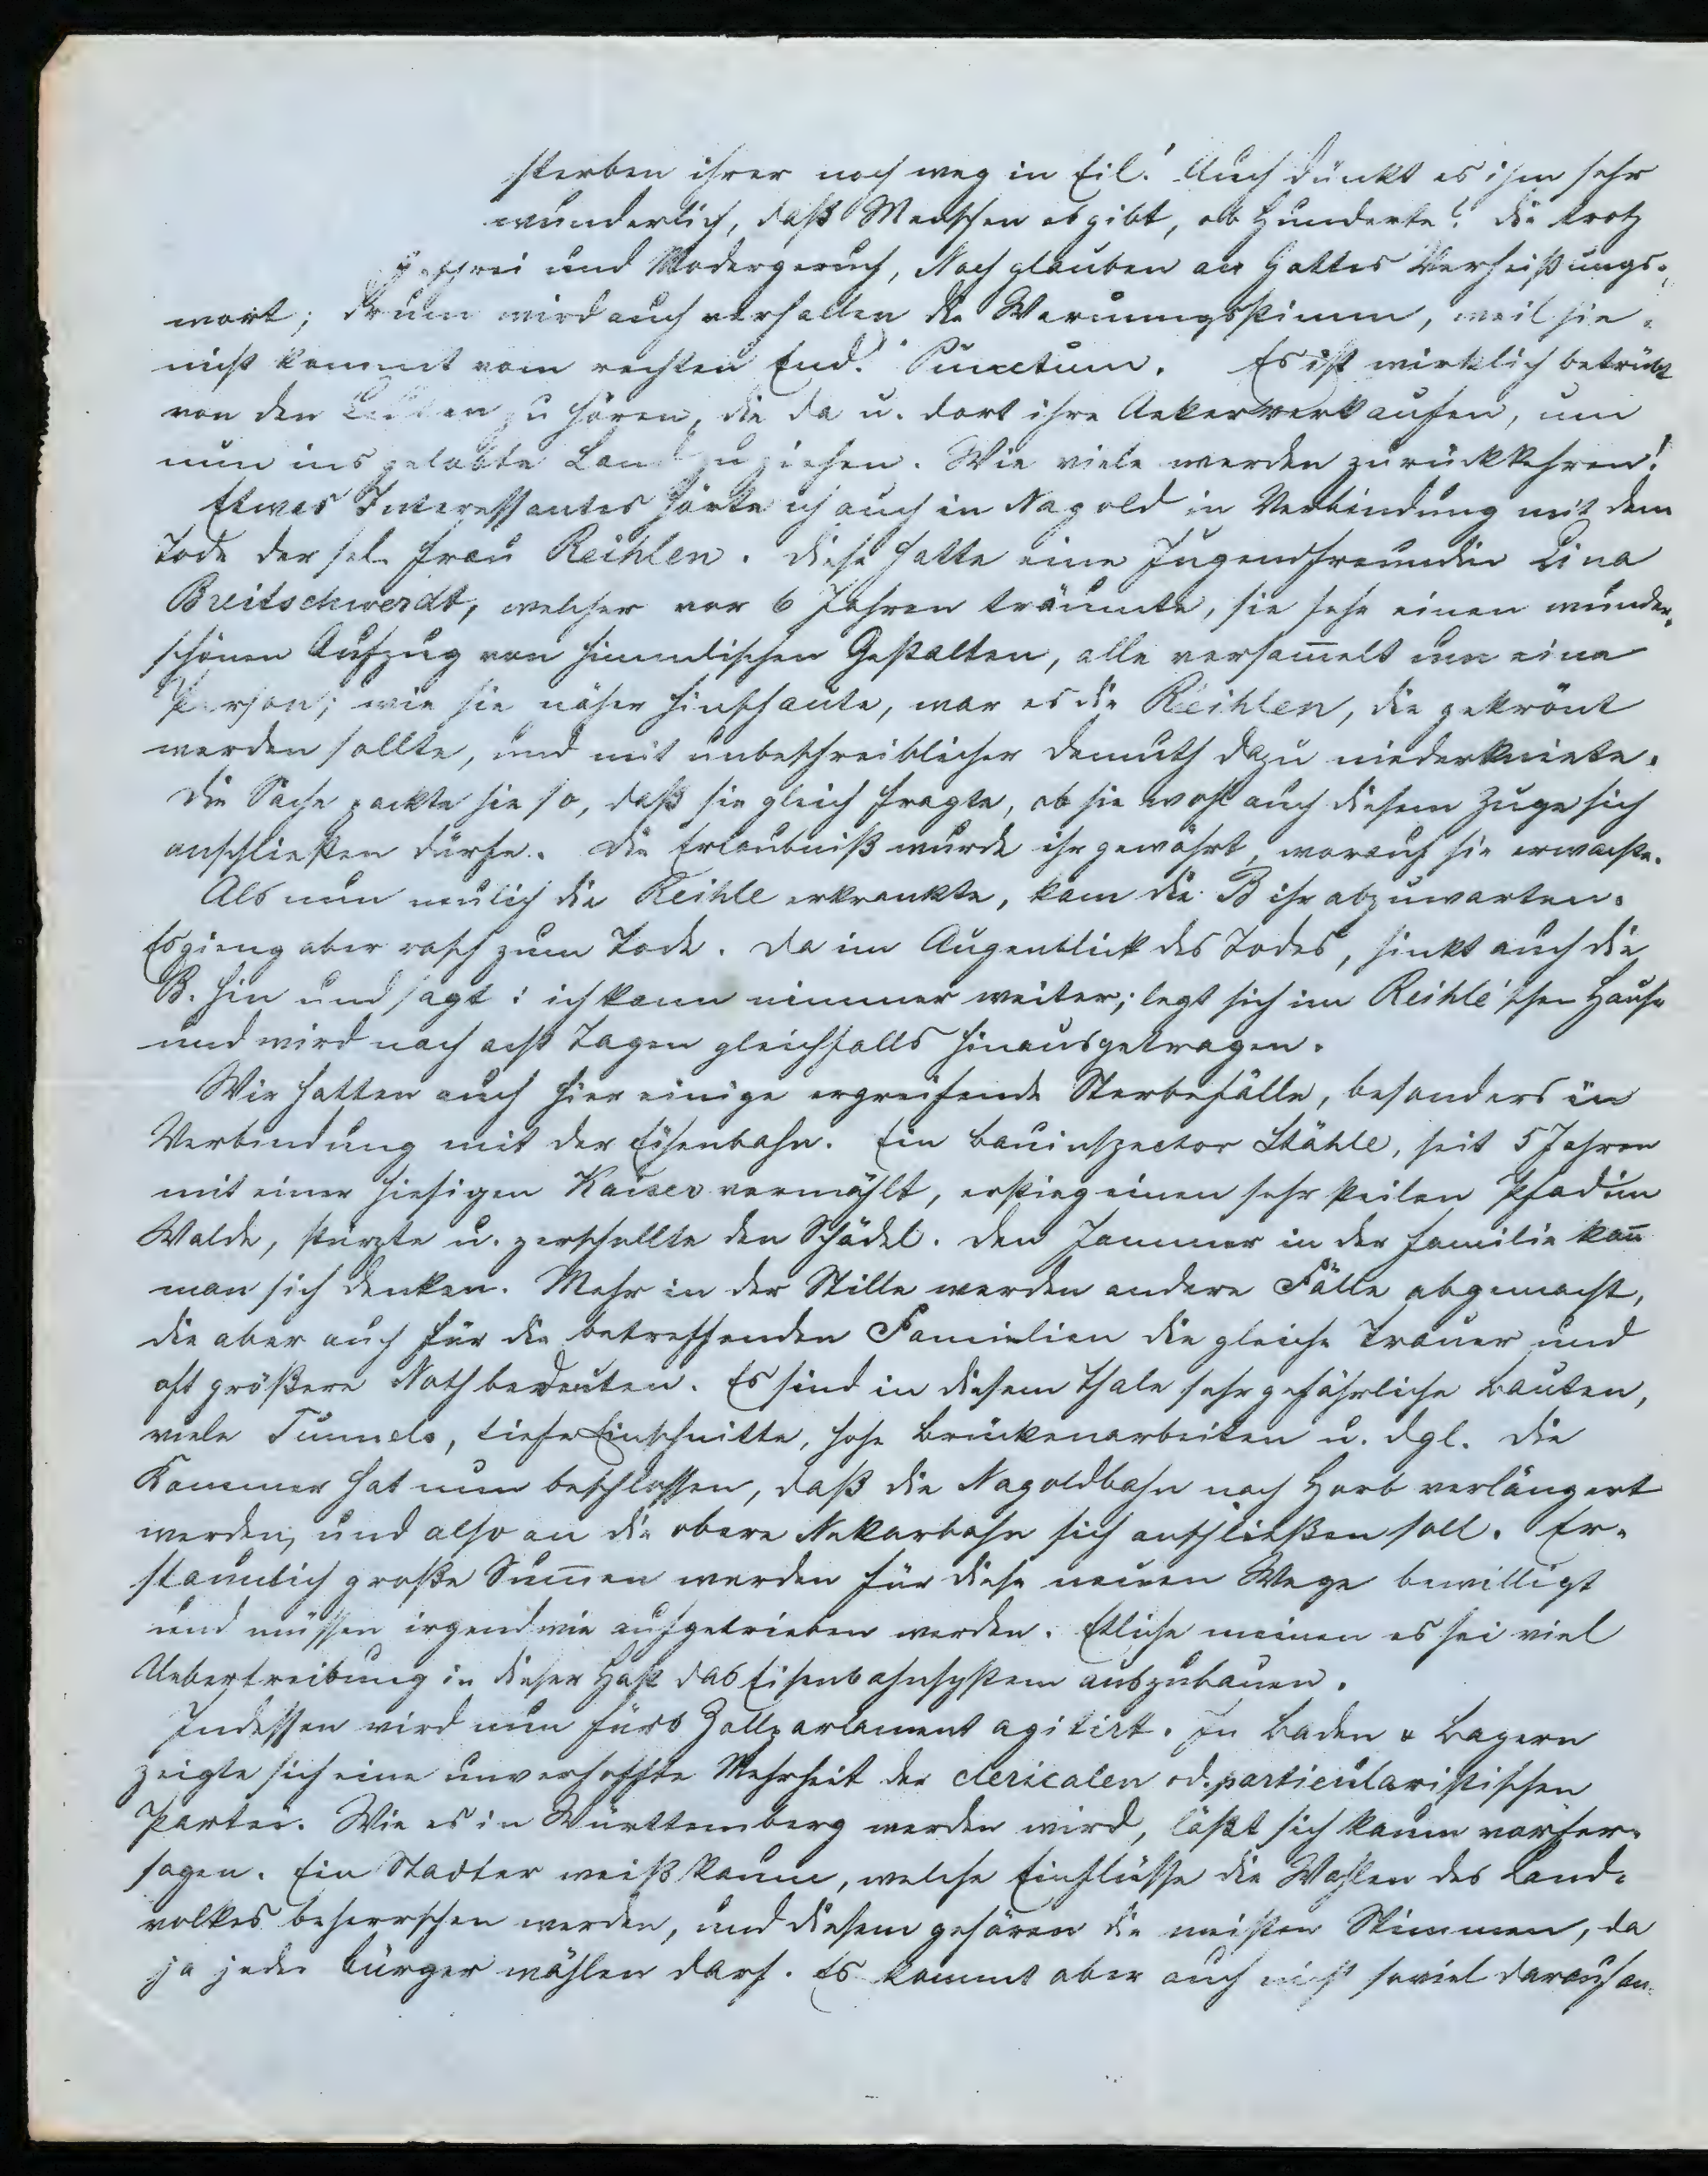 sterben ihrer noch weg in Eil! Auch dünkt es ihm sehr
wunderlich, daß Menschen es gibt, ob Hunderte! die trotz
Geschrei und Modergeruch, Noch glauben an Gottes Verheißungs-
wort; drum wird auch verhallen die Warnungsstimm, weil sie
nicht kommt vom rechten End." Punctum. Es ist wirklich betrübt
von den Leuten zu hören, die da u. dort ihre Aeker verkaufen, um
nun ins gelobte Land zu ziehen. Wie viele werden zurückkehren!
Etwas Interessantes hörte ich auch in Nagold in Verbindung mit dem
Tode der sel. Frau Reihlen. Diese hatte eine Jugendfreundin Lina
Breitschwerdt, welcher vor 6 Jahren träumte, sie sehe einen wunder-
schönen Aufzug von himmlischen Gestalten, alle versam̅elt um eine
Person; wie sie näher hinschaute, war es die Reihlen, die gekrönt
werden sollte, und mit unbeschreiblicher Demuth dazu niederkniete.
Die Sache packte sie so, daß sie gleich fragte, ob sie wohl auch diesem Zuge sich
anschließen dürfe. Die Erlaubniß wurde ihr gewährt, worauf sie erwachte.
Als nun neulich die Reihle erkrankte, kam die B ihr abzuwarten.
Es gieng aber rasch zum Tode. Da im Augenblick des Todes, sinkt auch die
B. hin und sagt: ich kann nimmer weiter; legt sich im Reihle'schen Hause
und wird nach acht Tagen gleichfalls hinausgetragen.
Wir hatten auch hier einige ergreifende Sterbefälle, besonders in
Verbindung mit der Eisenbahn. Ein Bauinspector Stähle, seit 5 Jahren
mit einer hiesigen Kaiser vermählt, erstieg einen sehr steilen Pfad im
Walde, stürzte u. zerschellte den Schädel. Den Jammer in der Familie kan̅
man sich denken. Mehr in der Stille werden andere Fälle abgemacht,
die aber auch für die betreffenden Familien die gleiche Trauer und
oft größere Noth bedeuten. Es sind in diesem Thale sehr gefährliche Bauten,
viele Tunnels, tiefe Einschnitte, hohe Brückenarbeiten u. dgl. Die
Kammer hat nun beschlossen, daß die Nagoldbahn nach Horb verlängert
werden, und also an die obere Nekarbahn sich anschließen soll. Er-
staunlich große Sum̅en werden für diese neuen Wege bewilligt
und müssen irgendwie aufgetrieben werden. Etliche meinen es sei viel
Uebertreibung in dieser Hast das Eisenbahnsystem auszubauen.
Indessen wird nun fürs Zollparlament agitirt. In Baden & Bayern
zeigte sich eine unverhoffte Mehrheit der clericalen od. particularistischen
Partei. Wie es in Württemberg werden wird, läßt sich kaum vorher-
sagen. Ein Stadter weiß kaum, welche Einflüsse die Wahlen des Land-
volkes beherrschen werden, und diesem gehören die meisten Stimmen, da
ja jeder Bürger wählen darf. Es kommt aber auch nicht soviel darauf an.